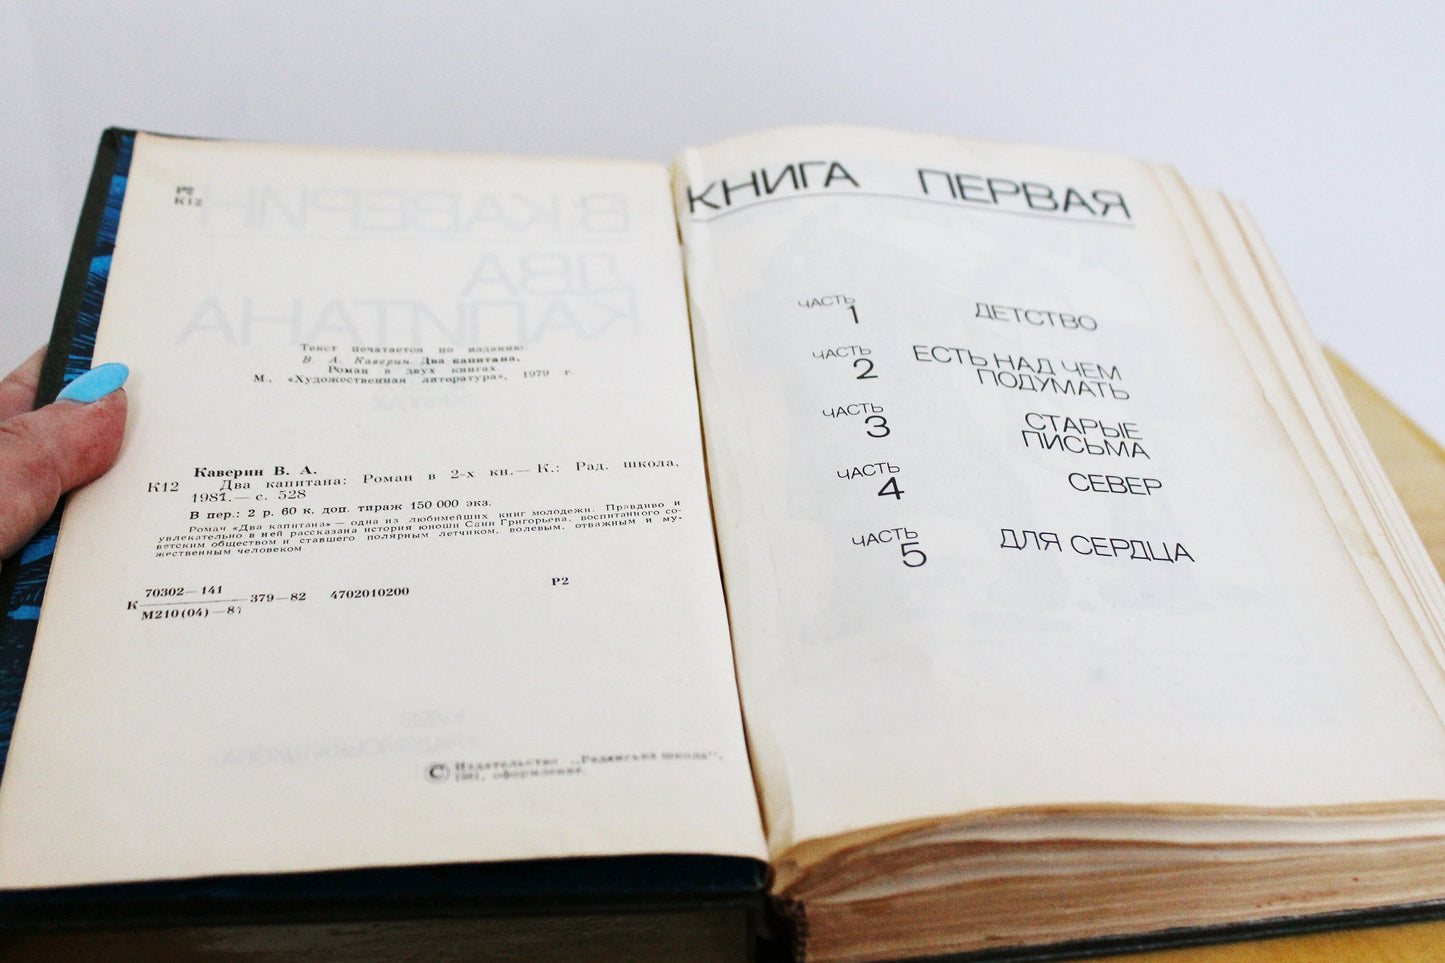 Р2
К12
Текст печатается по изданию:
В. А. Каверин. Два капитана.
Роман в двух книгах.
М., «Художественная литература», 1979 г.
Каверин В. А.
К12 Два капитана: Роман в 2-х кн.— К.: Рад. школа,
1981.— с. 528
В пер.: 2 р. 60 к. доп. тираж 150 000 экз.
Роман «Два капитана» — одна из любимейших книг молодежи. Правдиво и
увлекательно в ней рассказана история юноши Сани Григорьева, воспитанного со-
ветским обществом и ставшего полярным летчиком, волевым, отважным и му-
жественным человеком
70302—141
К 379—82 4702010200 Р2
М210(04)—81
© Издательство „Радянська школа",
1981, оформление.
КНИГА ПЕРВАЯ
ЧАСТЬ 1 ДЕТСТВО
ЧАСТЬ 2 ЕСТЬ НАД ЧЕМ
ПОДУМАТЬ
ЧАСТЬ 3 СТАРЫЕ
ПИСЬМА
ЧАСТЬ 4 СЕВЕР
ЧАСТЬ 5 ДЛЯ СЕРДЦА